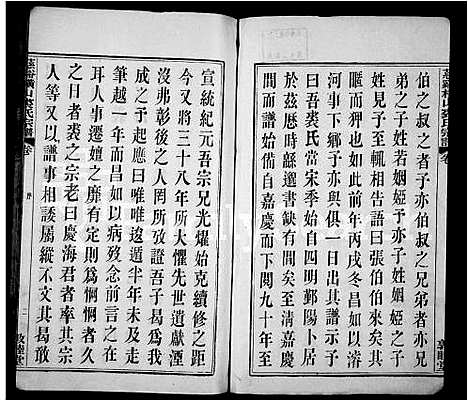 伯叔之者予亦伯叔之兄弟者亦兄
弟之子姓若姻婭予亦子姓姻婭之子
姓者至于輒相告語曰伯叔也來
也昆也如此前年丙戌冬昌
河事下鄉予亦與一日出其譜示予
曰吾裘氏當宋季始自四明鄞陽卜居
於昌歷時緜遠書缺有間矣今之所存
惟嘉慶譜譜始自嘉慶而下閱九十年至
宣統紀元吾宗兄光燿始克續修之距
今又將三十八年所大懼先世遺獻湮
沒弗彰後之人罔所攷證吾子曷為我
成之予起應曰唯唯逡遁半年未及走
筆越一年而昌病歿念前言之在
耳人事遷嬗之靡有定則為惘惘者久
之日者裘之宗老曰慶海君者率其宗
人等又以譜事相諉屬縱不文其曷敢
慈谿橫山裘氏宗譜
卷
序
二
敦睦堂